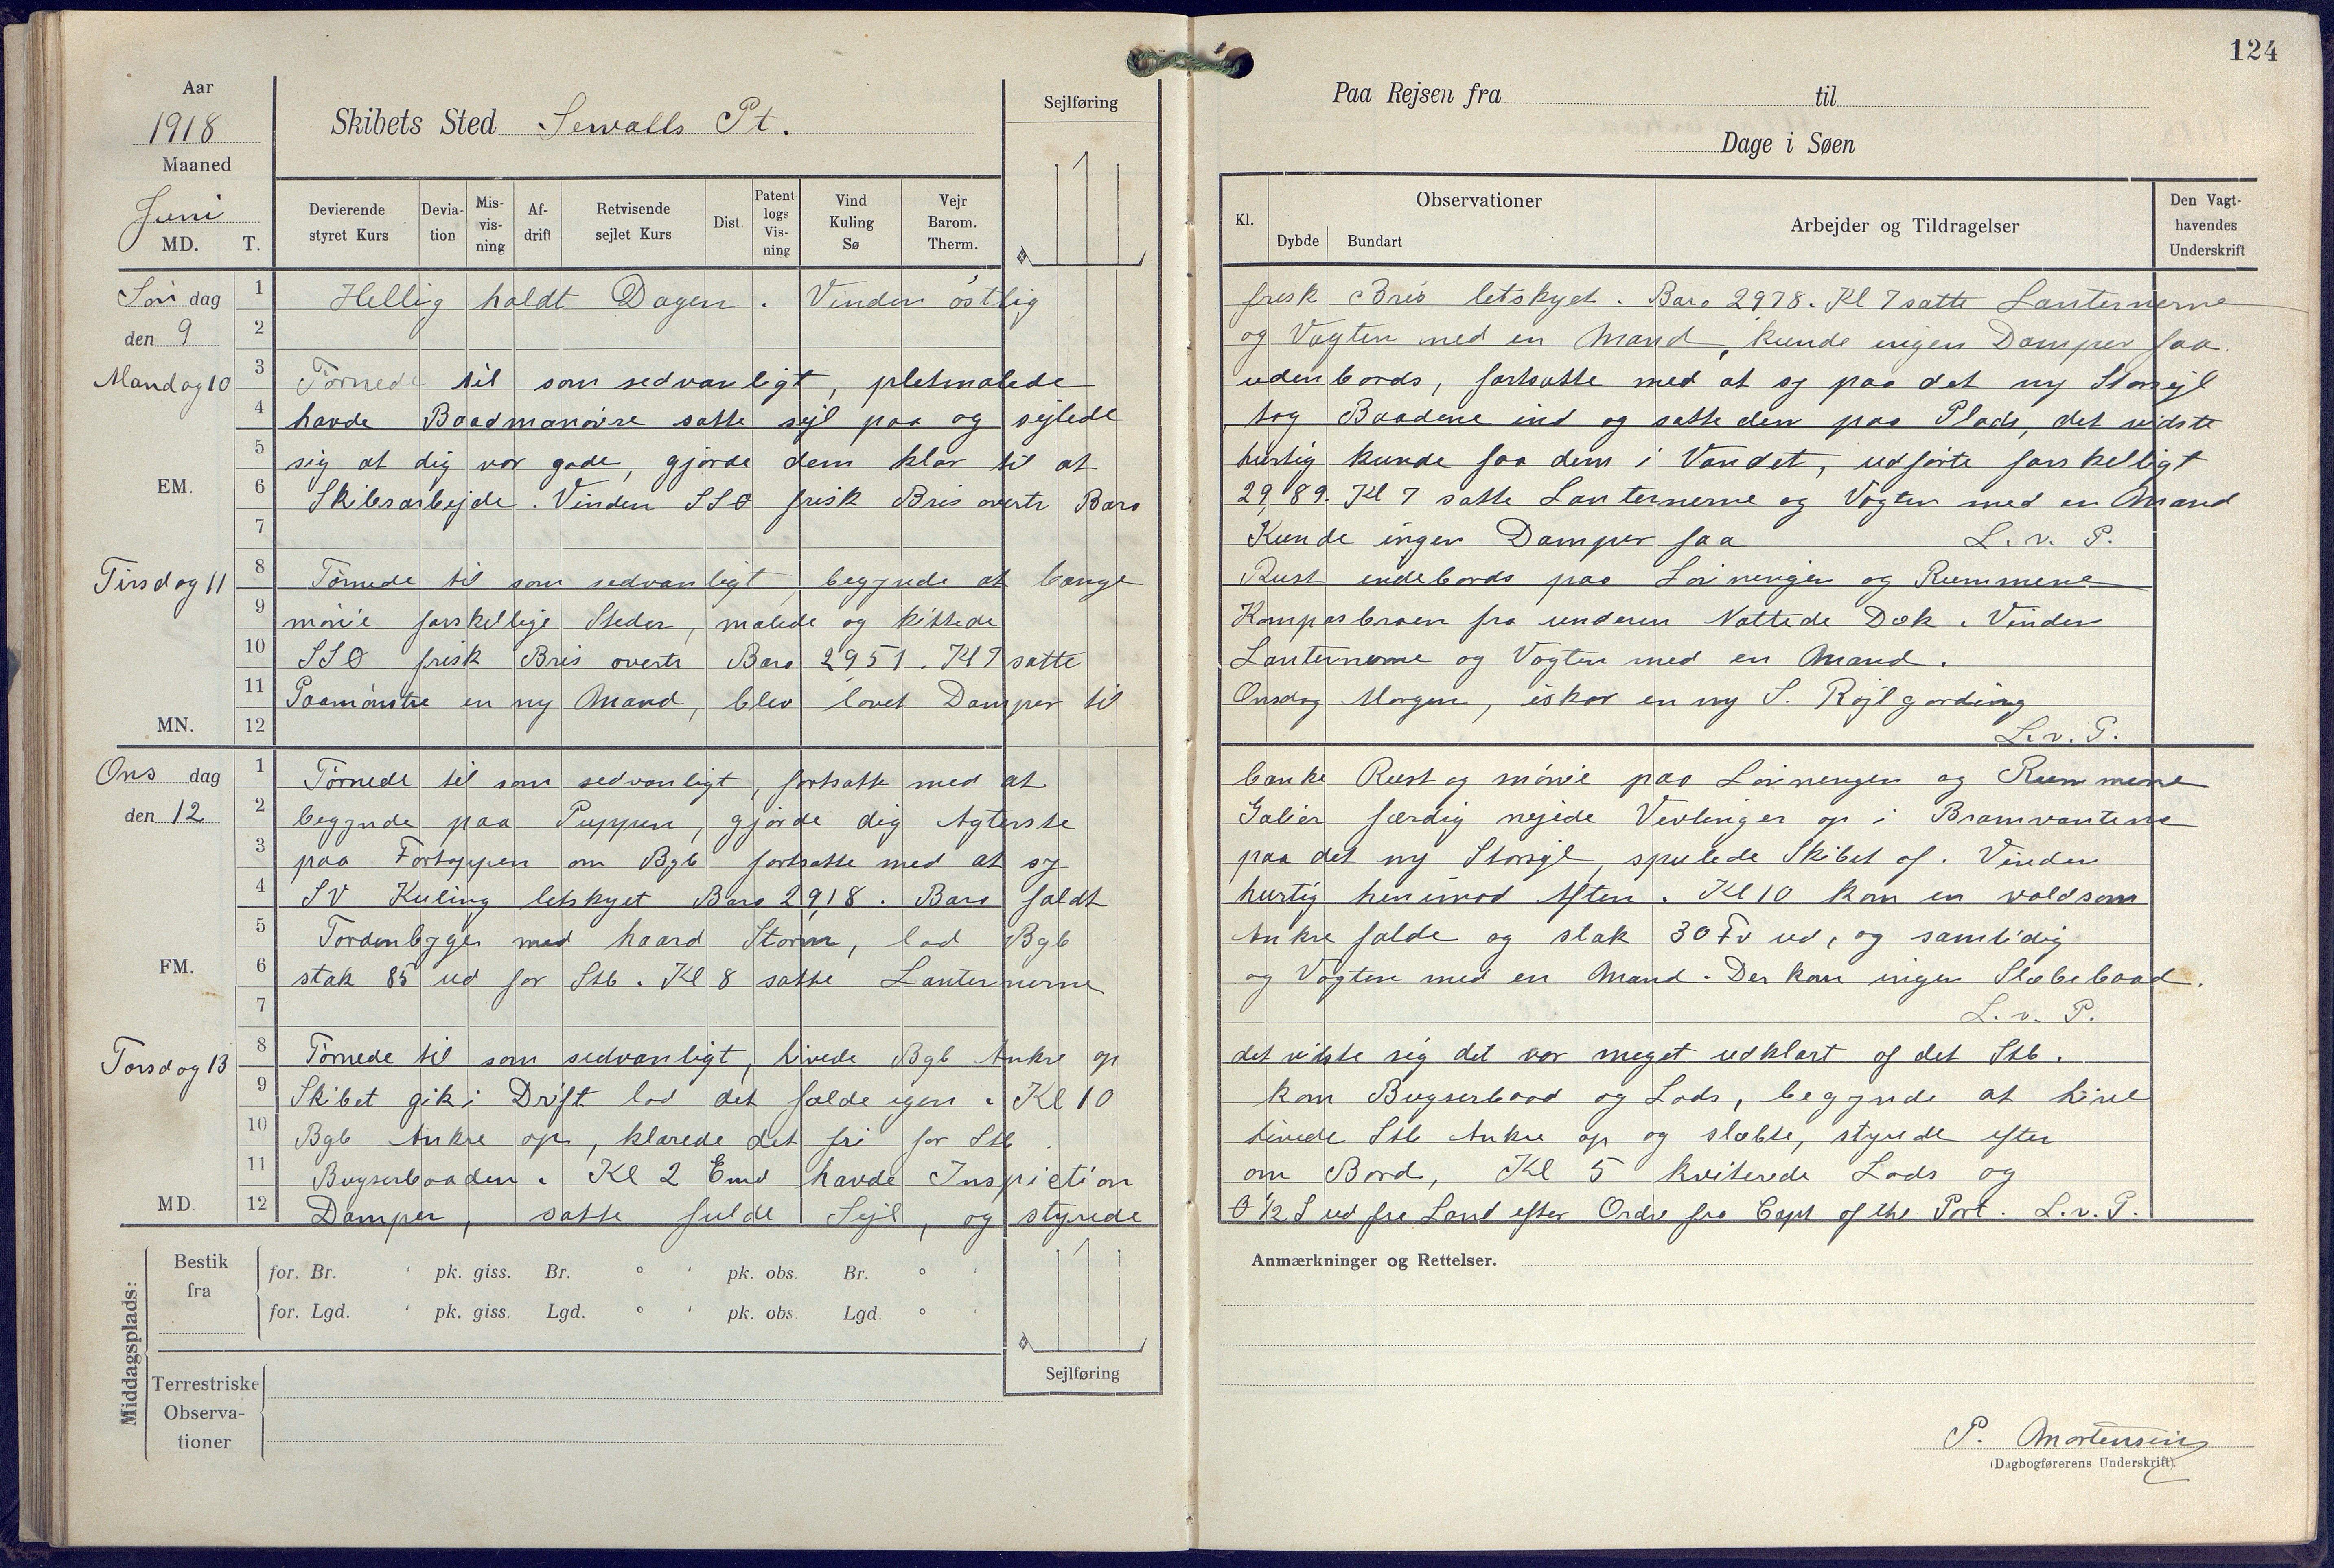 124
Aar
1918
Maaned
Juni
MD. T.
Skibets Sted Sewalls Pt.
Sejlføring
Devierende styret Kurs
Deviation
Misvisning
Afdrift
Retvisende sejlet Kurs
Dist.
Patent-logs Visning
Vind Kuling Sø
Vejr Barom. Therm.
Paa Rejsen fra til
Dage i Søen
Kl.
Observationer
Dybde Bundart
Arbejder og Tildragelser
Den Vagthavendes Underskrift
Søn dag den 9
1 2 3 4 5 6 7 8 9 10 11 12
Hellig holdt Dagen. Vinden östlig frisk Bris letskyet. Baro 2978. Kl 7 satte Lanternerne
og Vagten med en Mand, kunde ingen Damper faa.
Mandag 10
EM.
Törnede til som sedvanligt, pletmalede udenbords, fortsatte med at sy paa det ny Storsejl
havde Baadmanövre satte sejl paa og sejlede tog Baadene ind og satte dem paa Plads, det vidste
sig at dig var gode, gjorde dem klar til at hurtig kunde faa dem i Vandet, udförte forskelligt
Skibsarbejde. Vinden SSO frisk Bris overtr Baro 29,89. Kl 7 satte Lanternerne og Vagten med en Mand
Kunde ingen Damper faa L. v. P.
Tirsdag 11
MN.
Törnede til som sedvanligt, begynde at bange Rust indebords paa Löinengen og Rummene
mönie forskellige Steder, malede og kittede Kompasbroen fra underen Nattede Dæk. Vinden
SSO frisk Bris overtr Baro 2951. Kl 7 satte Lanternerne og Vagten med en Mand.
Paamönstre en ny Mand, blev lovet Damper til Onsdag Morgen, iskor en ny S. Röjlgording
L. v. P.
Ons dag den 12
1 2 3 4 5 6 7 8 9 10 11 12
FM.
Törnede til som sedvanligt, fortsatte med at banke Rust og mönie paa Löinengen og Rummene
begynde paa Puppen, gjorde dig Agterste Galier færdig nejede Vevlinger op i Bramvantene
paa Fortoppen om Bgb fortsatte med at sy paa det ny Storsejl, spulede Skibet af. Vinden
SV Kuling letskyet Baro 2918. Baro faldt hurtig henimod Aften. Kl 10 kom en voldsom
Tordenbyger med haard Storm, lod Bgb Ankre falde og stak 30 Fv ud, og samtidig
stak 85 ud for Stb. Kl 8 satte Lanternerne og Vagten med en Mand. Der kom ingen Slæbebaad.
L. v. P.
Torsdag 13
MD.
Törnede til som sedvanligt, hivede Bgb Ankre op det viste sig det var meget udklart af det Stb.
Skibet gik i Drift lod det falde igen. Kl 10 kom Bugserbaad og Lods, begynde at hive
Bgb Ankre op, klarede det fri for Stb. hivede Stb Ankre op og slæbte, styrede efter
Bugserbaaden. Kl 2 Emd havde Inspiction om Bord, Kl 5 kviterede Lods og
Damper, satte fulde Sejl, og styrede O 1/2 S ud fra Land efter Ordre fra Capt of the Port. L. v. P.
Middagsplads:
Bestik fra
for. Br. ' pk. giss. Br. ° ' pk. obs. Br. ° '
for. Lgd. ' pk. giss. Lgd. ° ' pk. obs. Lgd. ° '
Terrestriske Observationer
Sejlføring
Anmærkninger og Rettelser.
P. Mortensen
(Dagbogførerens Underskrift).